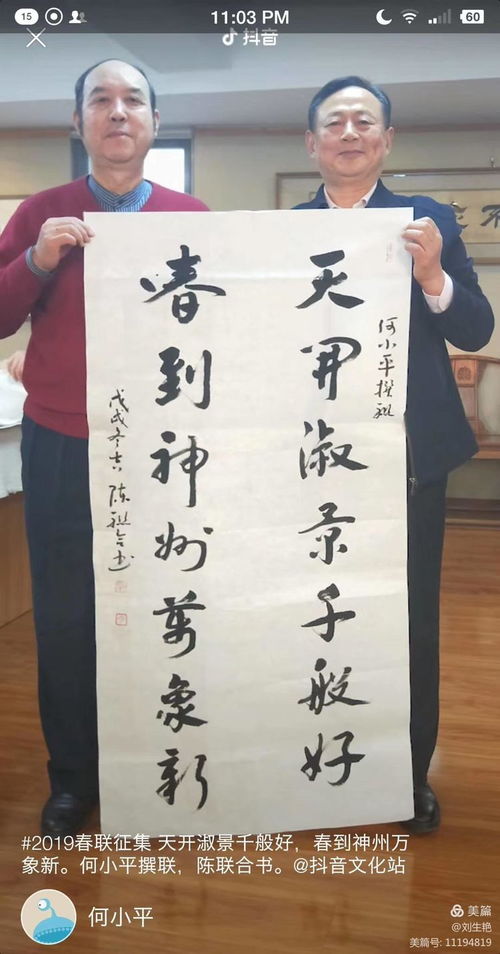 15
11:03 PM
60
抖音
天開淑景千般好
何小平撰联
春到神州萬象新
戊戌冬吉 陈联合书
#2019春联征集 天开淑景千般好，春到神州万
象新。何小平撰联，陈联合书。@抖音文化站
何小平
美篇
@刘生艳
美篇号: 11194819